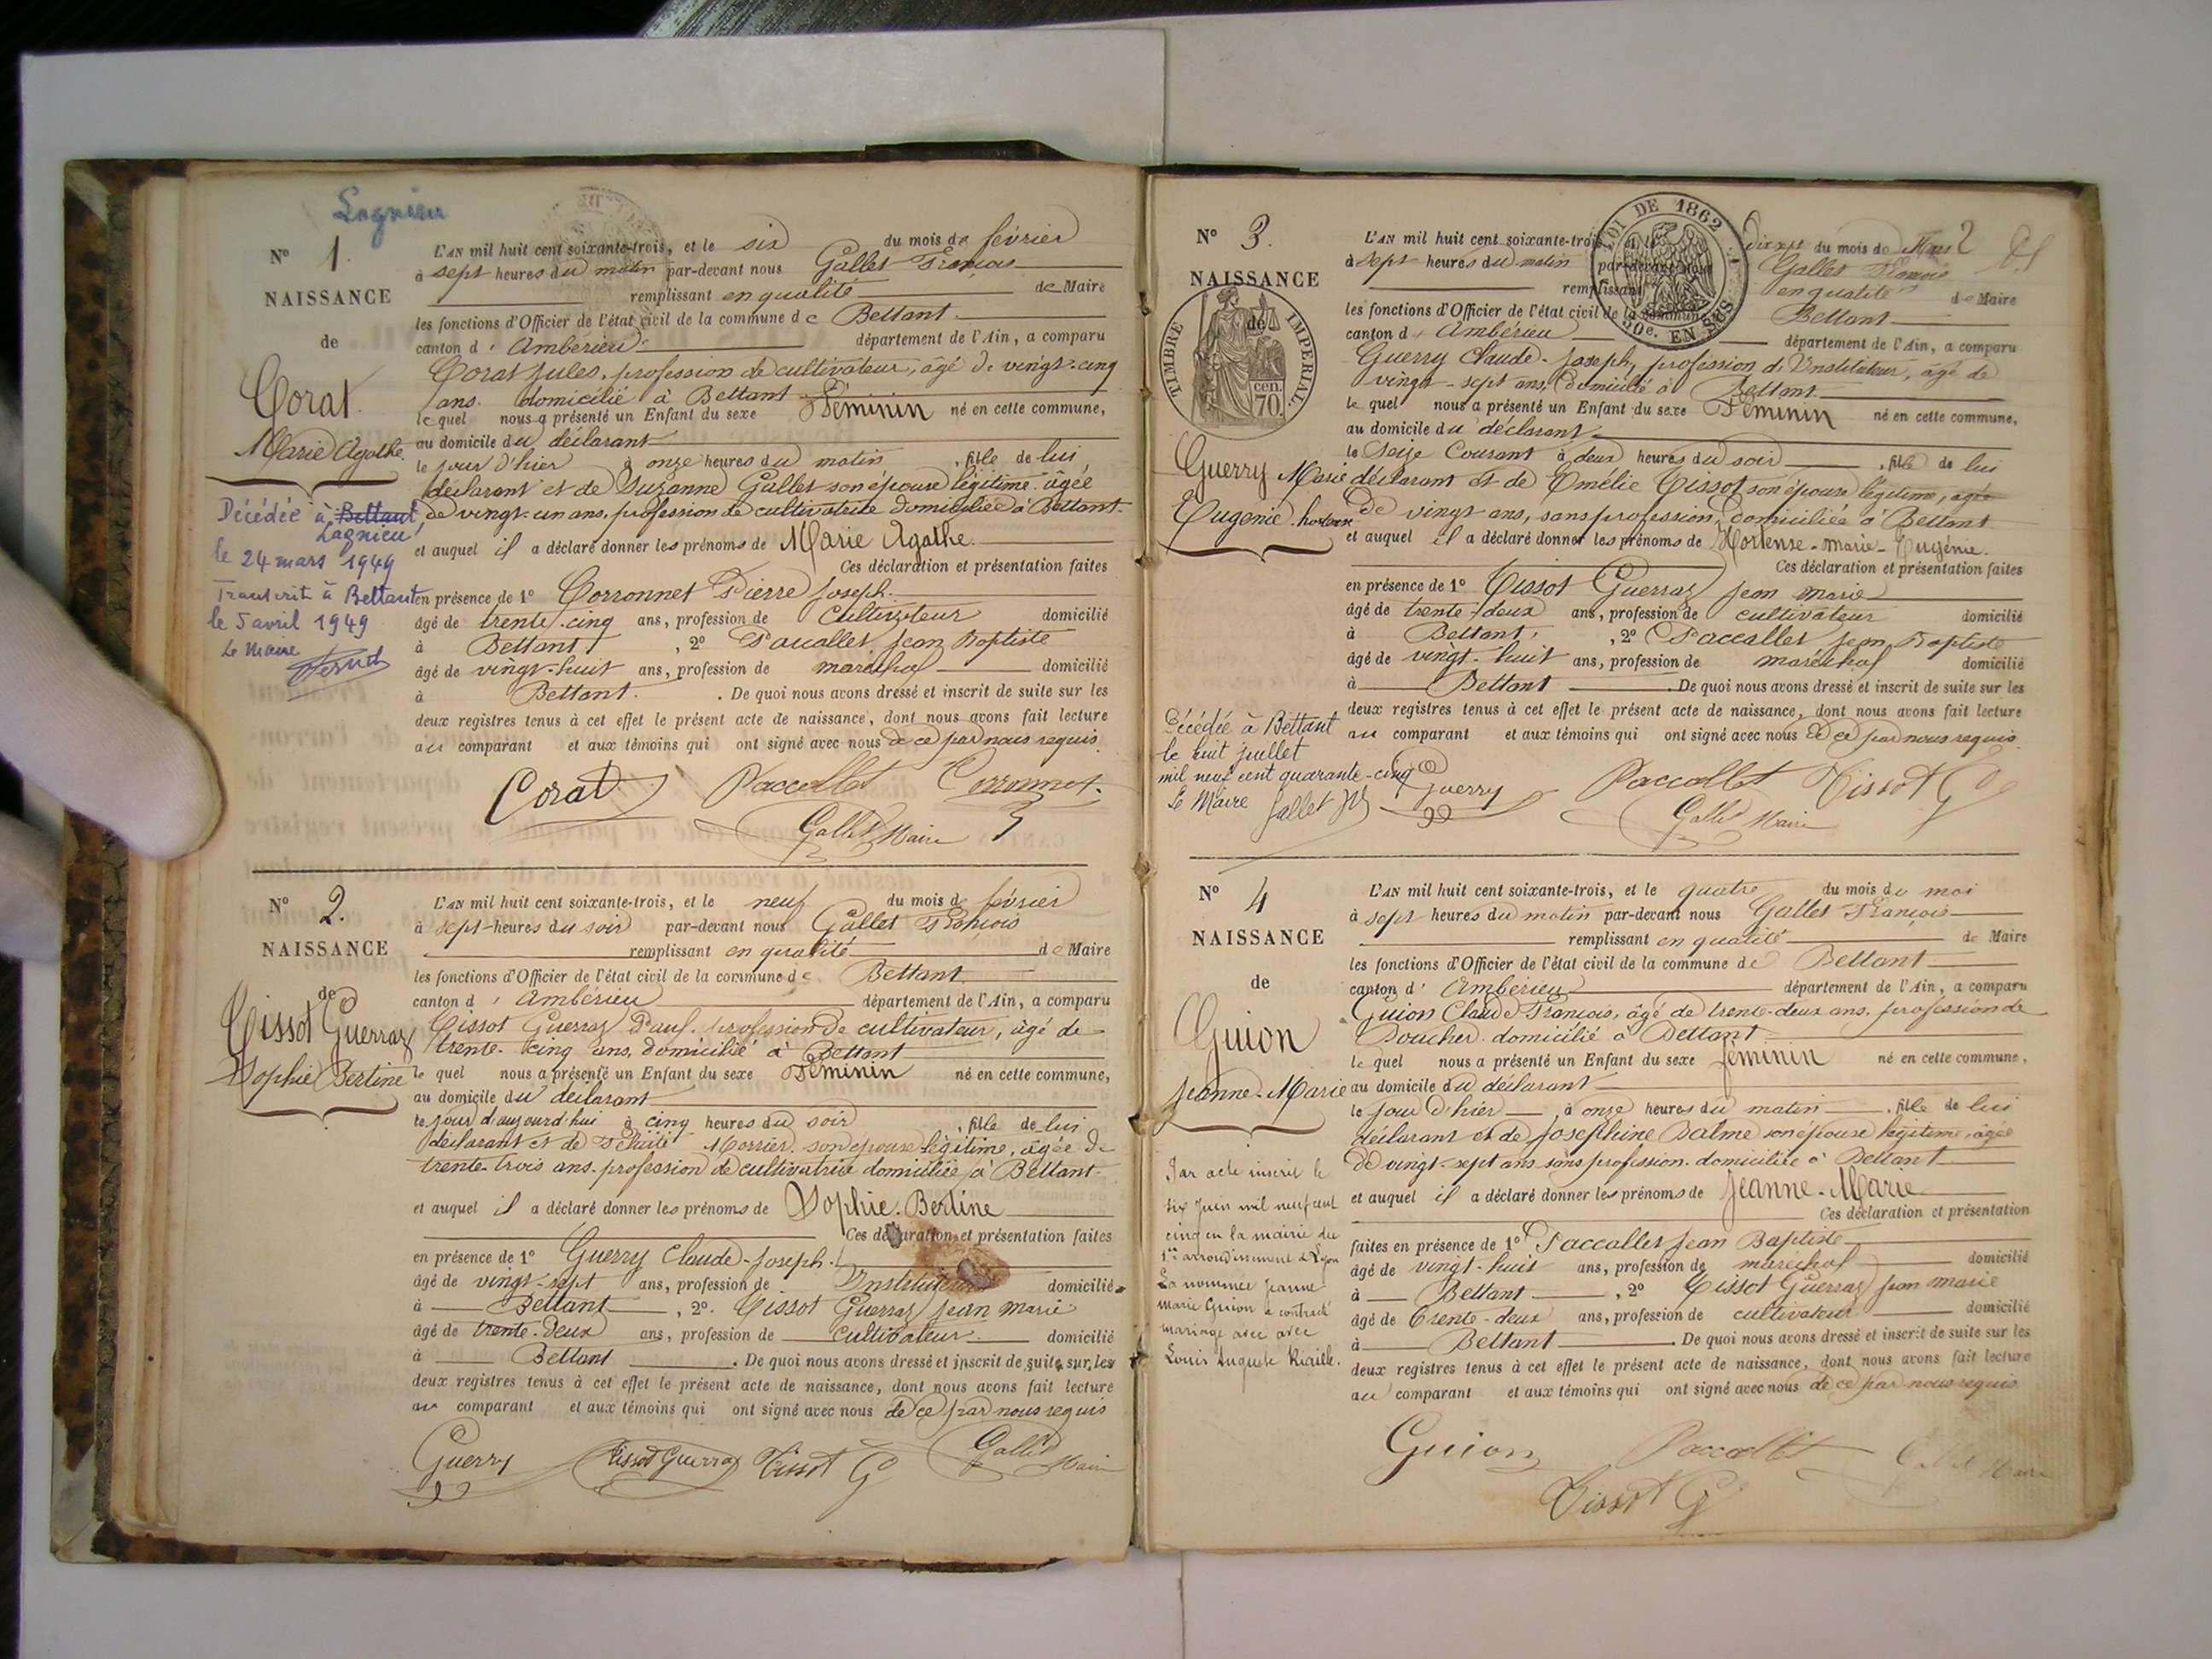 Lagnieu
N° 1.
NAISSANCE
de
Corat
Marie Agathe
Décédée à Bettant
Lagnieu
le 24 mars 1949
Transcrit à Bettant
le 5 avril 1949
Le Maire
L'AN mil huit cent soixante-trois, et le six du mois de février
à sept heures du matin par-devant nous Gallet François
remplissant en qualité de Maire
les fonctions d'Officier de l'état civil de la commune de Bettant
canton d' Ambérieu département de l'Ain, a comparu
Corat Jules, profession de cultivateur, âgé de vingt-cinq
ans. domicilié à Bettant
lequel nous a présenté un Enfant du sexe Féminin né en cette commune,
au domicile du déclarant
le jour d'hier à onze heures du matin, fille de lui
déclarant et de Suzanne Gallet son épouse légitime âgée
de vingt-un ans, profession de cultivatrice domiciliée à Bettant
et auquel il a déclaré donner les prénoms de Marie Agathe.
Ces déclaration et présentation faites
en présence de 1° Corronnet Pierre Joseph
âgé de trente-cinq ans, profession de Cultivateur domicilié
à Bettant, 2° Paccallet Jean Baptiste
âgé de vingt-huit ans, profession de maréchal domicilié
à Bettant. De quoi nous avons dressé et inscrit de suite sur les
deux registres tenus à cet effet le présent acte de naissance, dont nous avons fait lecture
au comparant et aux témoins qui ont signé avec nous de ce par nous requis
Corat Paccallet Corronnet
Gallet Maire
N° 2.
NAISSANCE
de
Tissot Guerraz
Sophie Bertine
L'AN mil huit cent soixante-trois, et le neuf du mois de février
à sept heures du soir par-devant nous Gallet François
remplissant en qualité de Maire
les fonctions d'Officier de l'état civil de la commune de Bettant
canton d' Ambérieu département de l'Ain, a comparu
Tissot Guerraz Paul, profession de cultivateur, âgé de
trente-cinq ans, domicilié à Bettant
lequel nous a présenté un Enfant du sexe Féminin né en cette commune,
au domicile du déclarant
le jour d'aujourd'hui à cinq heures du soir, fille de lui
déclarant et de Merrier son épouse légitime, âgée de
trente-trois ans, profession de cultivatrice domiciliée à Bettant
et auquel il a déclaré donner les prénoms de Sophie-Bertine
Ces déclaration et présentation faites
en présence de 1° Guerry Claude-Joseph
âgé de vingt-sept ans, profession de Instituteur domicilié
à Bettant, 2° Tissot Guerraz Jean Marie
âgé de trente-deux ans, profession de cultivateur domicilié
à Bettant. De quoi nous avons dressé et inscrit de suite sur les
deux registres tenus à cet effet le présent acte de naissance, dont nous avons fait lecture
au comparant et aux témoins qui ont signé avec nous de ce par nous requis
Guerry Tissot Guerraz Tissot G Gallet Maire
N° 3.
NAISSANCE
de
TIMBRE IMPERIAL.
70 cen.
Guerry Marie
Eugenie hortense
Décédée à Bettant
le huit juillet
mil neuf cent quarante-cinq
Le Maire Gallet
LOI DE 1862
50c. EN SUS
2
L'AN mil huit cent soixante-trois, et le dix sept du mois de Mars
à sept heures du matin par-devant nous Gallet François
remplissant en qualité de Maire
les fonctions d'Officier de l'état civil de la commune Bettant
canton d' Ambérieu département de l'Ain, a comparu
Guerry Claude-Joseph, profession d'Instituteur, âgé de
vingt-sept ans, domicilié à Bettant
lequel nous a présenté un Enfant du sexe Féminin né en cette commune,
au domicile du déclarant
le Seize Courant à deux heures du soir, fille de lui
déclarant et de Emélie Tissot son épouse légitime, âgée
de vingt ans, sans profession, domiciliée à Bettant
et auquel il a déclaré donner les prénoms de Hortense-Marie-Eugénie.
Ces déclaration et présentation faites
en présence de 1° Tissot Guerraz Jean Marie
âgé de trente-deux ans, profession de cultivateur domicilié
à Bettant, 2° Paccallet Jean Baptiste
âgé de vingt-huit ans, profession de maréchal domicilié
à Bettant. De quoi nous avons dressé et inscrit de suite sur les
deux registres tenus à cet effet le présent acte de naissance, dont nous avons fait lecture
au comparant et aux témoins qui ont signé avec nous de ce par nous requis
Guerry Paccallet Tissot G
Gallet Maire
N° 4
NAISSANCE
de
Guion
Jeanne-Marie
Par acte inscrit le
six juin mil neuf cent
cinq en la mairie du
1er arrondissement de Lyon
La nommée Jeanne
Marie Guion a contracté
mariage avec avec
Louis Auguste Riaille.
L'AN mil huit cent soixante-trois, et le quatre du mois de mai
à sept heures du matin par-devant nous Gallet François
remplissant en qualité de Maire
les fonctions d'Officier de l'état civil de la commune de Bettant
canton d' Ambérieu département de l'Ain, a comparu
Guion Claude François, âgé de trente-deux ans, profession de
Boucher domicilié à Bettant
lequel nous a présenté un Enfant du sexe féminin né en cette commune,
au domicile du déclarant
le jour d'hier, à onze heures du matin, fille de lui
déclarant et de Josephine Balme son épouse légitime, âgée
de vingt-sept ans sans profession domiciliée à Bettant
et auquel il a déclaré donner les prénoms de Jeanne-Marie
Ces déclaration et présentation
faites en présence de 1° Paccallet Jean Baptiste
âgé de vingt-huit ans, profession de maréchal domicilié
à Bettant, 2° Tissot Guerraz Jean Marie
âgé de trente-deux ans, profession de cultivateur domicilié
à Bettant. De quoi nous avons dressé et inscrit de suite sur les
deux registres tenus à cet effet le présent acte de naissance, dont nous avons fait lecture
au comparant et aux témoins qui ont signé avec nous de ce par nous requis
Guion Paccallet Gallet Maire
Tissot G